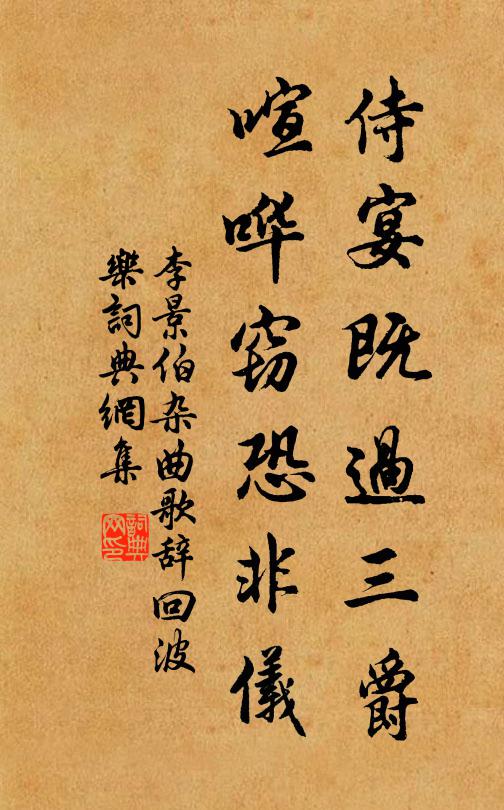 侍宴既過三爵
喧哗竊恐非儀
李景伯杂曲歌辞回波
樂詞典網集
詞典网印